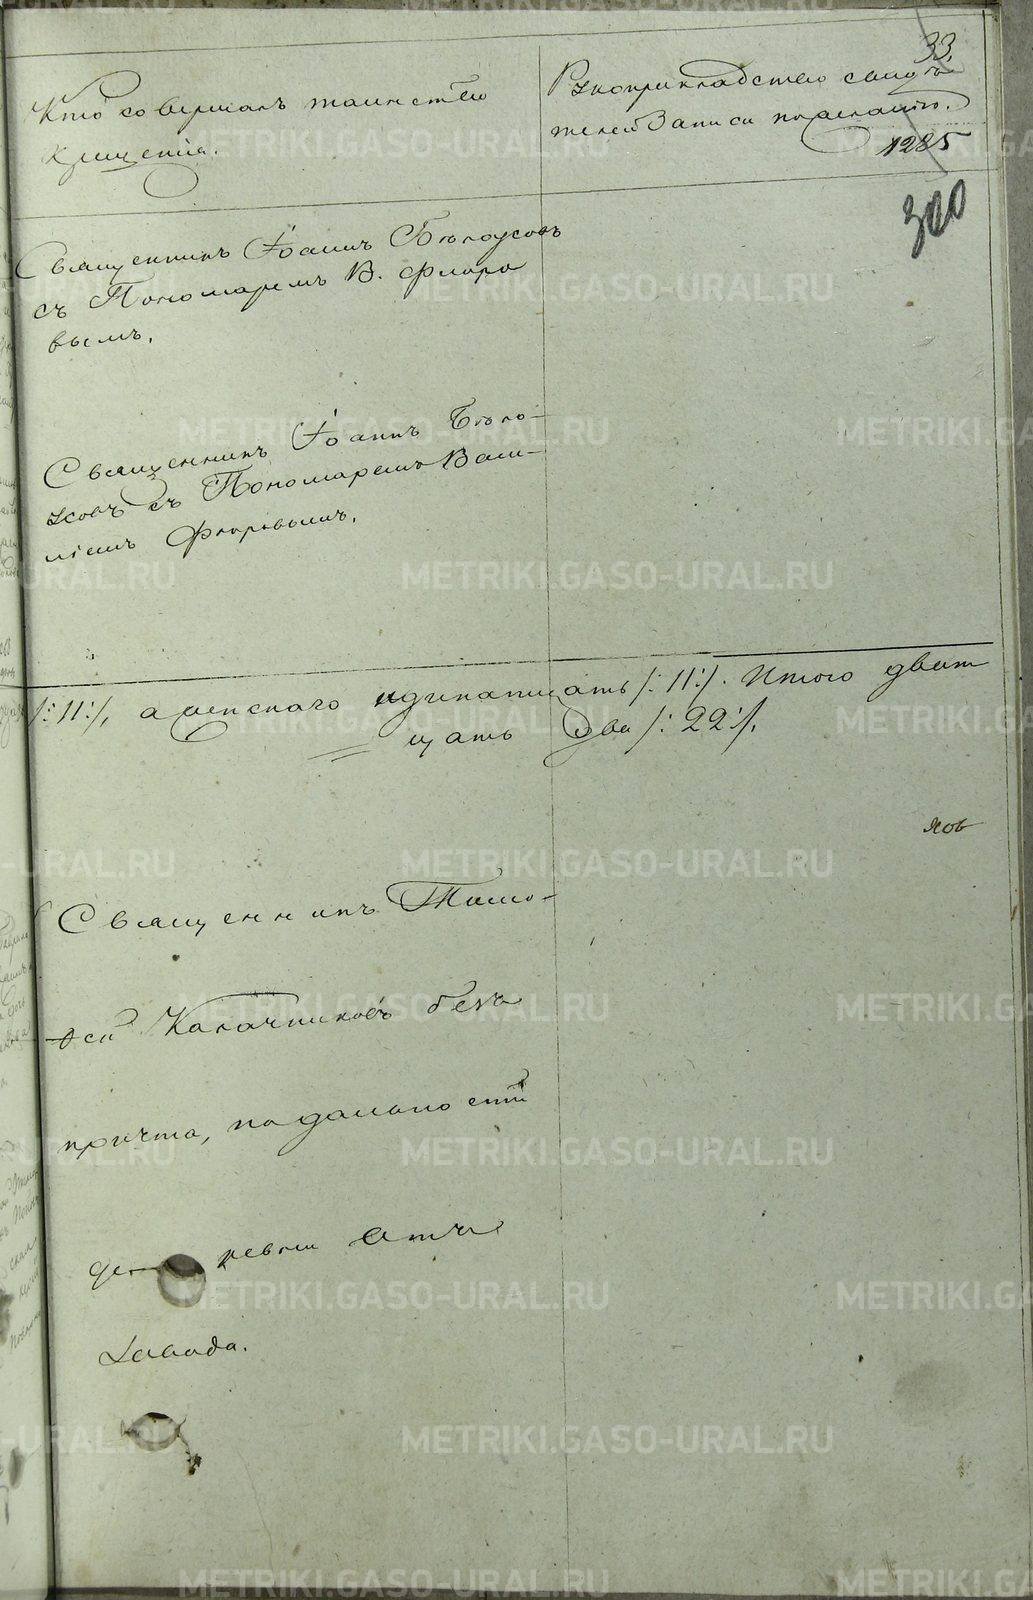 33.
Кто совершалъ таинство
крещенія.
Рукоприкладство свидѣ
телей записи по желанію.
1285
300
Священникъ Іоаннъ Бѣлоусовъ
съ Пономаремъ В. Флоро
вымъ.
Священникъ Іоаннъ Бѣло-
усовъ съ Пономаремъ Васи-
ліемъ Флоровымъ.
/:11:/, а женскаго одинатцать /:11:/. Итого дват
цать два /:22:/.
Священникъ Тимо-
ѳей Калачниковъ безъ
причта, по дальности
деревни отъ
METRIKI.GASO-URAL.RU